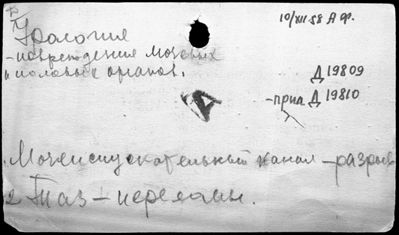 Урология
10/XII.58 А Ф.
- повреждение мочевых
и половых органов.
Д 19809
- прил Д 19810
А
1. Мочеиспускательный канал - разрыв
2 Таз - переломы.